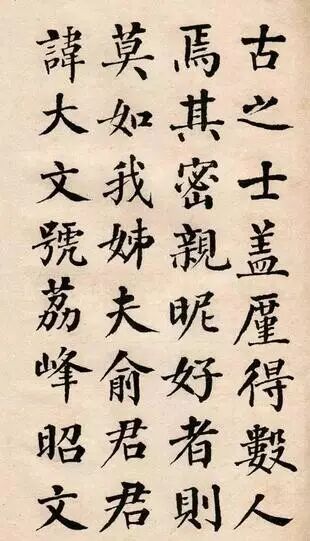 古之士盖廑得數人
焉其密親昵好者則
莫如我姊夫俞君君
諱大文號荔峰昭文